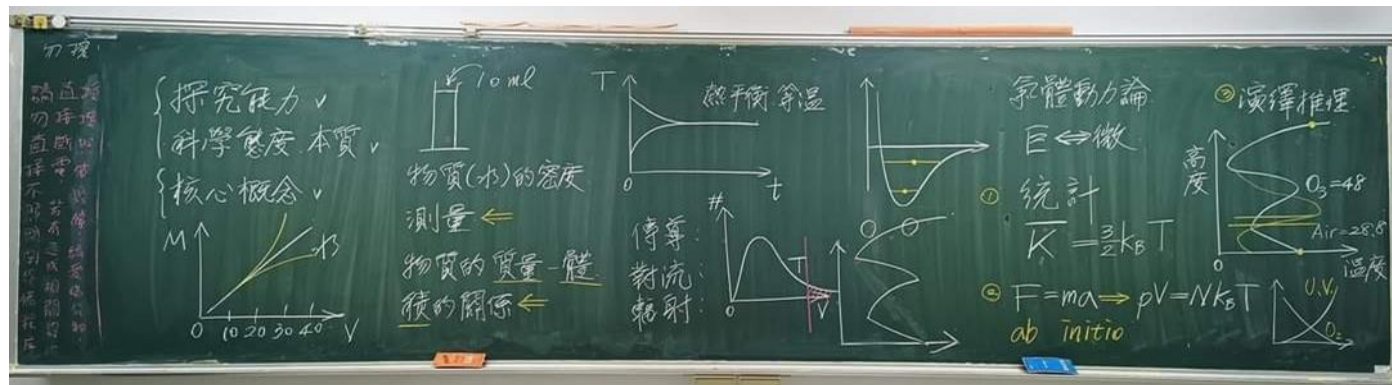 勿擦:
探究能力 ✓
科學態度.本質 ✓
核心概念 ✓
M
水
0 10 20 30 40 V
10ml
物質(水)的密度
測量 ⇐
物質的質量-體
積的關係 ⇐
T
熱平衡 等溫
0
t
傳導:
對流:
輻射:
#
T
0
V
氣體動力論
巨⇔微
① 統計
K = 3/2 kB T
② F=ma ⇒ pV=NkBT
ab initio
③演繹推理
高度
O3=48
Air=28.8
0
溫度
U.V.
O2